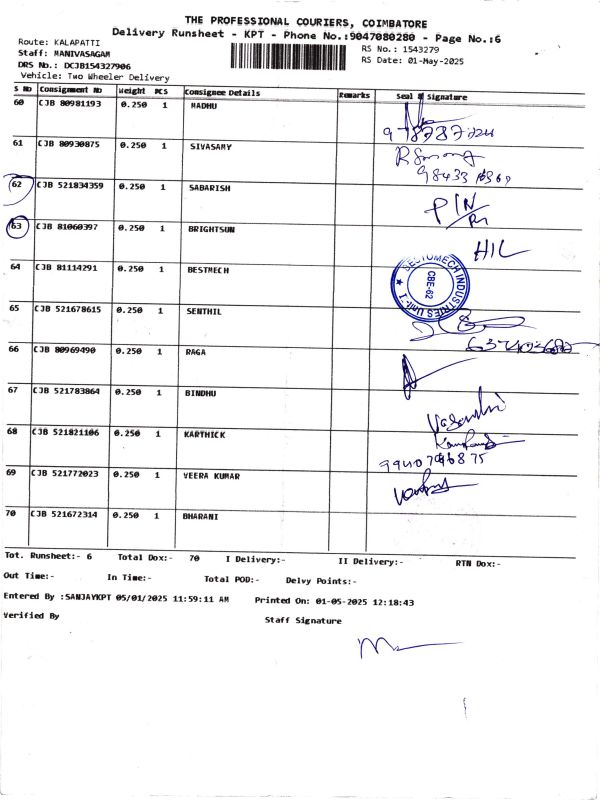 THE PROFESSIONAL COURIERS, COIMBATORE
Delivery Runsheet - KPT - Phone No.:9047080280 - Page No.:6
Route: KALAPATTI
RS No.: 1543279
Staff: MANIVASAGAM
RS Date: 01-May-2025
DRS No.: DCJB154327906
Vehicle: Two Wheeler Delivery
S No Consignment No Weight PCS Consignee Details Remarks Seal & Signature
60 CJB 80981193 0.250 1 MADHU
61 CJB 80930875 0.250 1 SIVASAMY
62 CJB 521834359 0.250 1 SABARISH
PIN/
63 CJB 81060397 0.250 1 BRIGHTSUN
HIL
64 CJB 81114291 0.250 1 BESTMECH
BESTOMECH INDUSTRIES Unit-I
CBE-62
65 CJB 521678615 0.250 1 SENTHIL
66 CJB 80969490 0.250 1 RAGA
67 CJB 521783864 0.250 1 BINDHU
68 CJB 521821106 0.250 1 KARTHICK
69 CJB 521772023 0.250 1 VEERA KUMAR
70 CJB 521672314 0.250 1 BHARANI
Tot. Runsheet:- 6 Total Dox:- 70 I Delivery:- II Delivery:- RTN Dox:-
Out Time:- In Time:- Total POD:- Delvy Points:-
Entered By :SANJAYKPT 05/01/2025 11:59:11 AM Printed On: 01-05-2025 12:18:43
Verified By Staff Signature